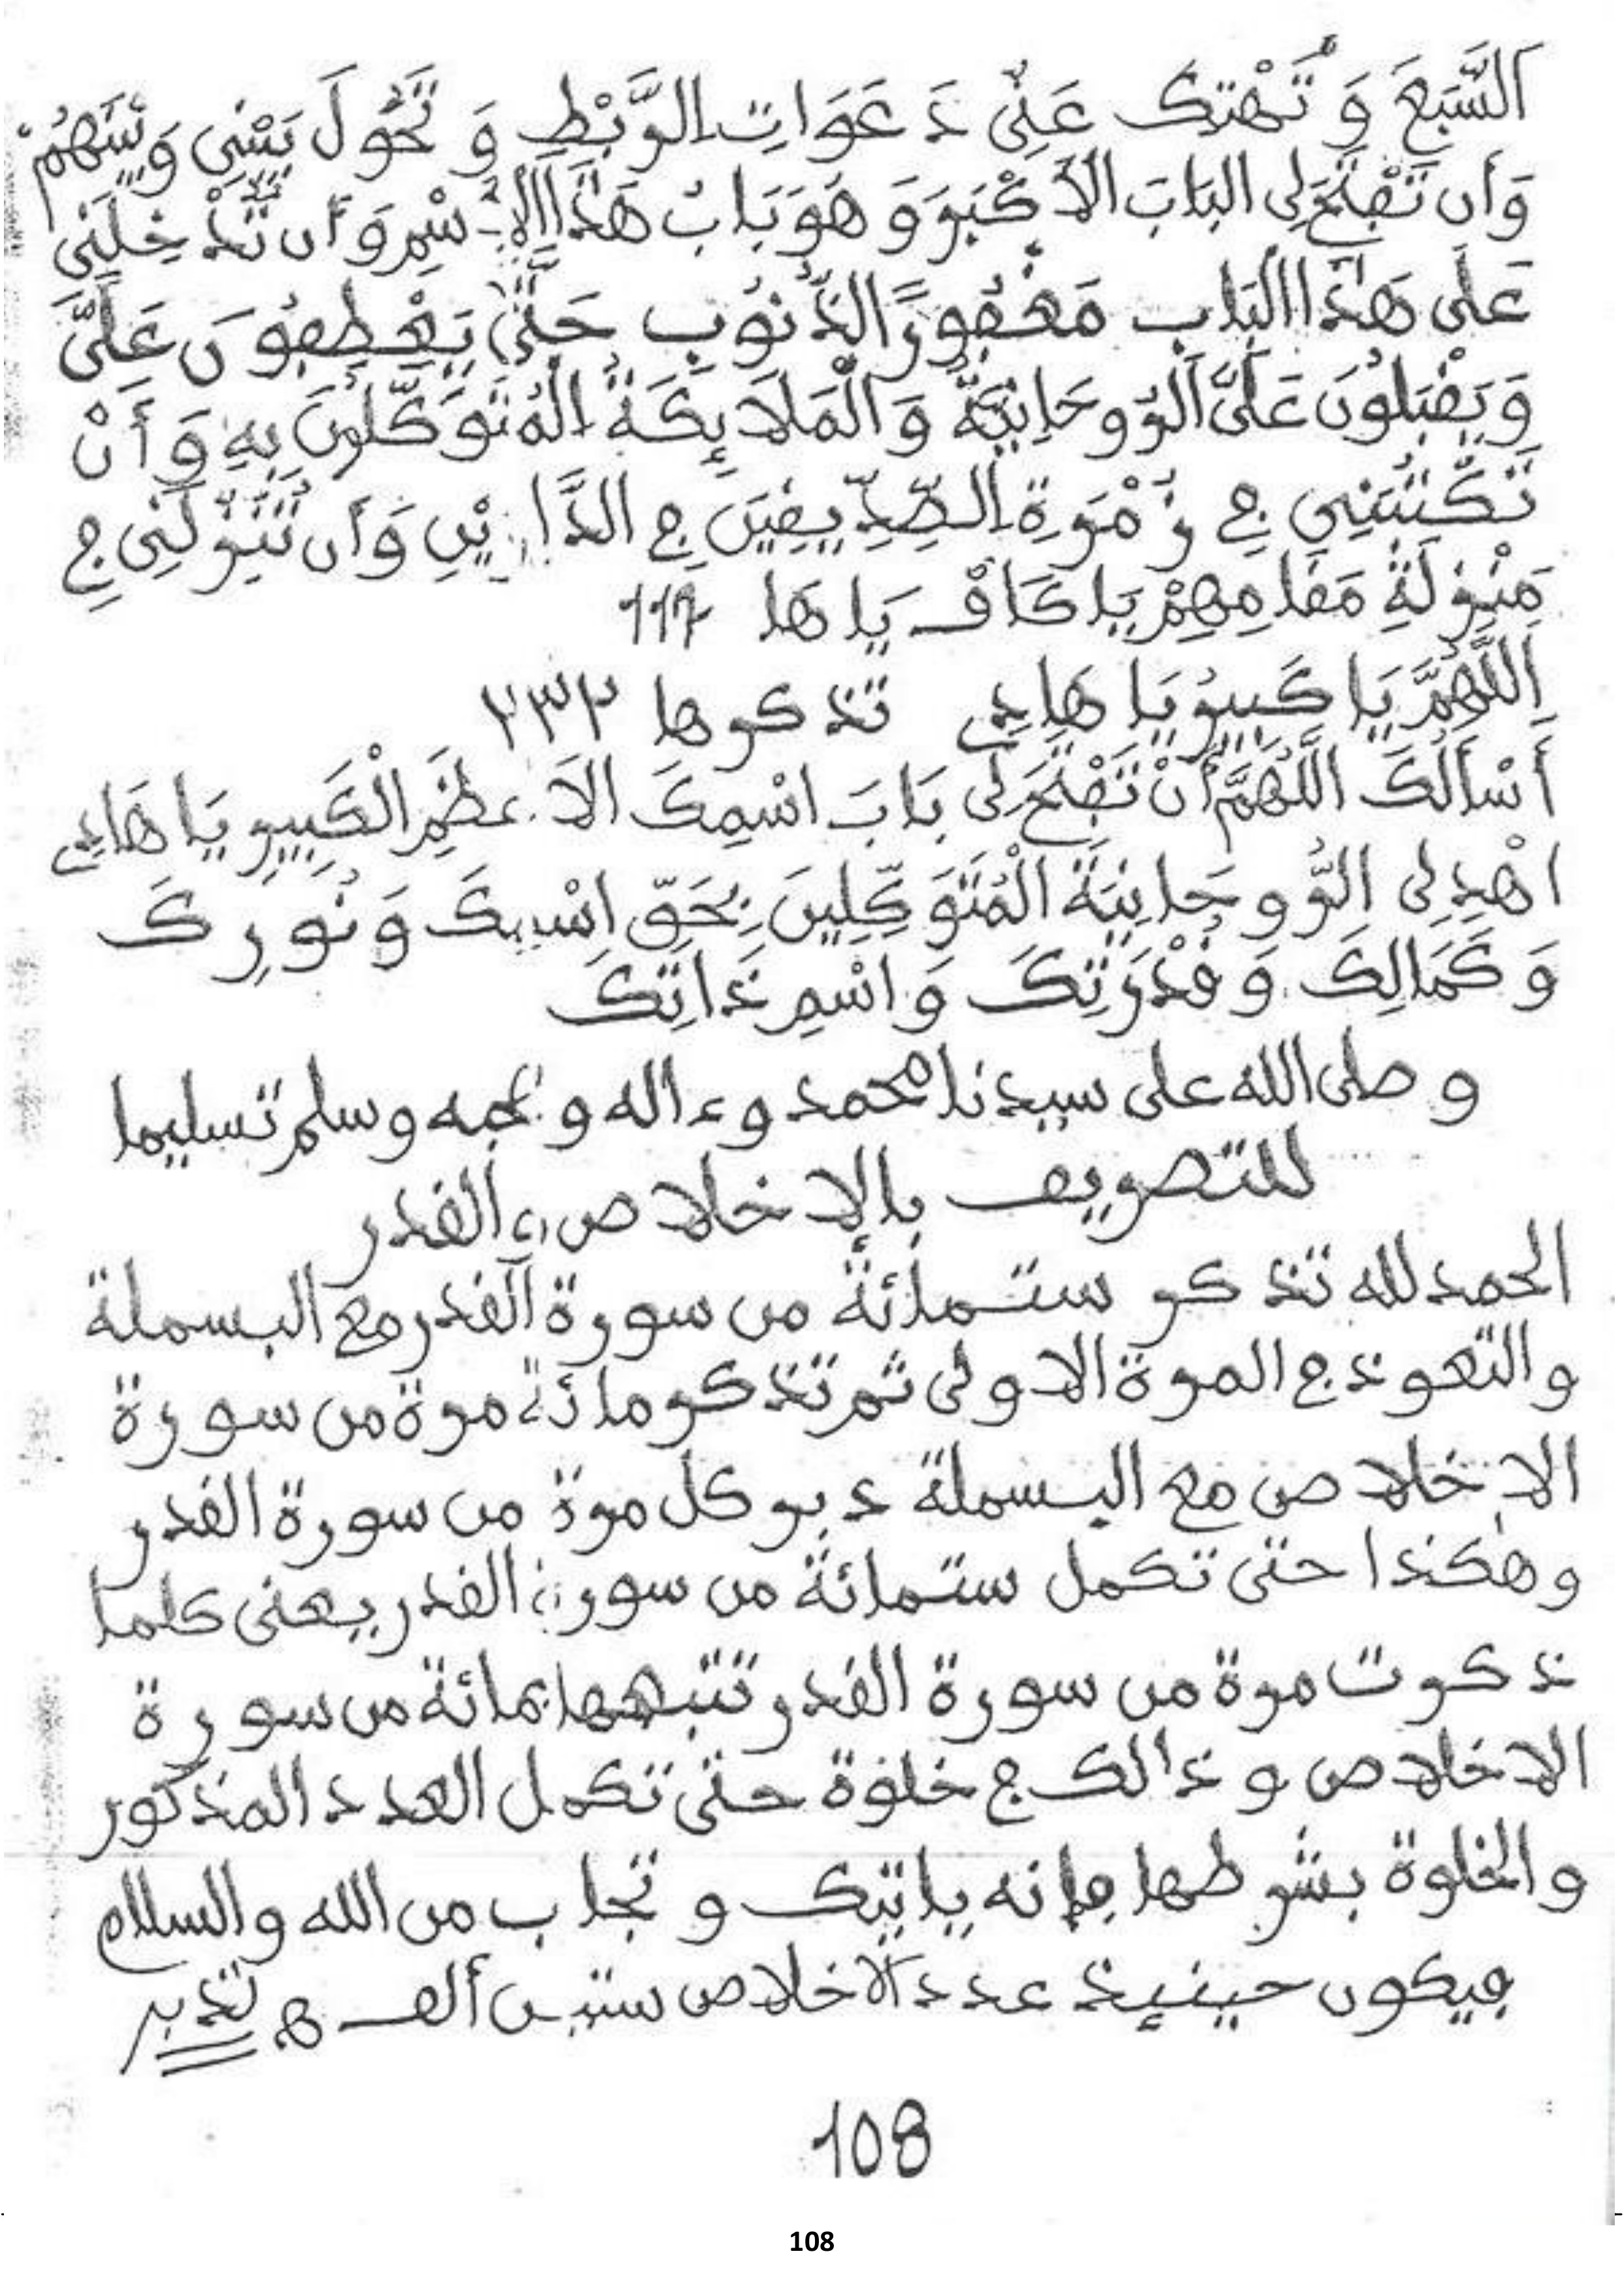 اَلسَّبَعَ وَ تَهْتِكَ عَنِّي دَعَوَاتِ الرَّبْطِ وَ تَحَوَّلَ بَيْنِي وَبَيْنَهُمْ
وَأَن تَفْتَحَ لِي البَابَ الاَكْبَرَ وَ هَوَ بَابُ هَذَا الاِسْمِ وَأَن تُدْخِلَنِي
عَلَى هَذَا البَابِ مَغْفُورَ الذُّنُوبِ حَتَّى يَعْطِفُونَ عَلَيَّ
وَيَقْبَلُونَ عَلَيَّ الرُّوحَانِيَّةُ وَالْمَلاَئِكَةُ الْمُتَوَكِّلُونَ بِهِ وَأَنْ
تَكْتُبَنِي فِي زُمْرَةِ الصِّدِّيقِينَ فِي الدَّارَيْنِ وَأَن تُنْزِلَنِي فِي
مَنْزِلَةِ مَقَامِهِمْ يَا كَافْ يَا هَا 111
اَللَّهُمَّ يَا كَبِيرُ يَا هَادِي تذكرها ٢٣٢
أَسْأَلُكَ اللَّهُمَّ أَنْ تَفْتَحَ لِي بَابَ اسْمِكَ الاَعظَمِ الْكَبِيرِ يَا هَادِي
اهْدِ لِي الرُّوحَانِيَةَ الْمُتَوَكِّلِينَ بِحَقِّ اسْمِكَ وَنُورِكَ
وَكَمَالِكَ وَقُدْرَتِكَ وَاسْمِ ذَاتِكَ
وصلى الله على سيدنا محمد وءاله وصحبه وسلم تسليما
للتصريف بالإخلاص والقدر
الحمد لله تذكر ستمائة من سورة القدر مع البسملة
والتعوذ في المرة الاولى ثم تذكر مائة مرة من سورة
الاخلاص مع البسملة دبر كل مرة من سورة القدر
وهكذا حتى تكمل ستمائة من سورة القدر يعنى كلما
ذكرت مرة من سورة القدر تتبعها بمائة من سورة
الاخلاص وذالك في خلوة حتى تكمل العدد المذكور
والخلوة بشرطها فإنه ياتيك وتجاب من الله والسلام
فيكون حينيئذ عدد الاخلاص ستين ألف ه تدبر
108
108